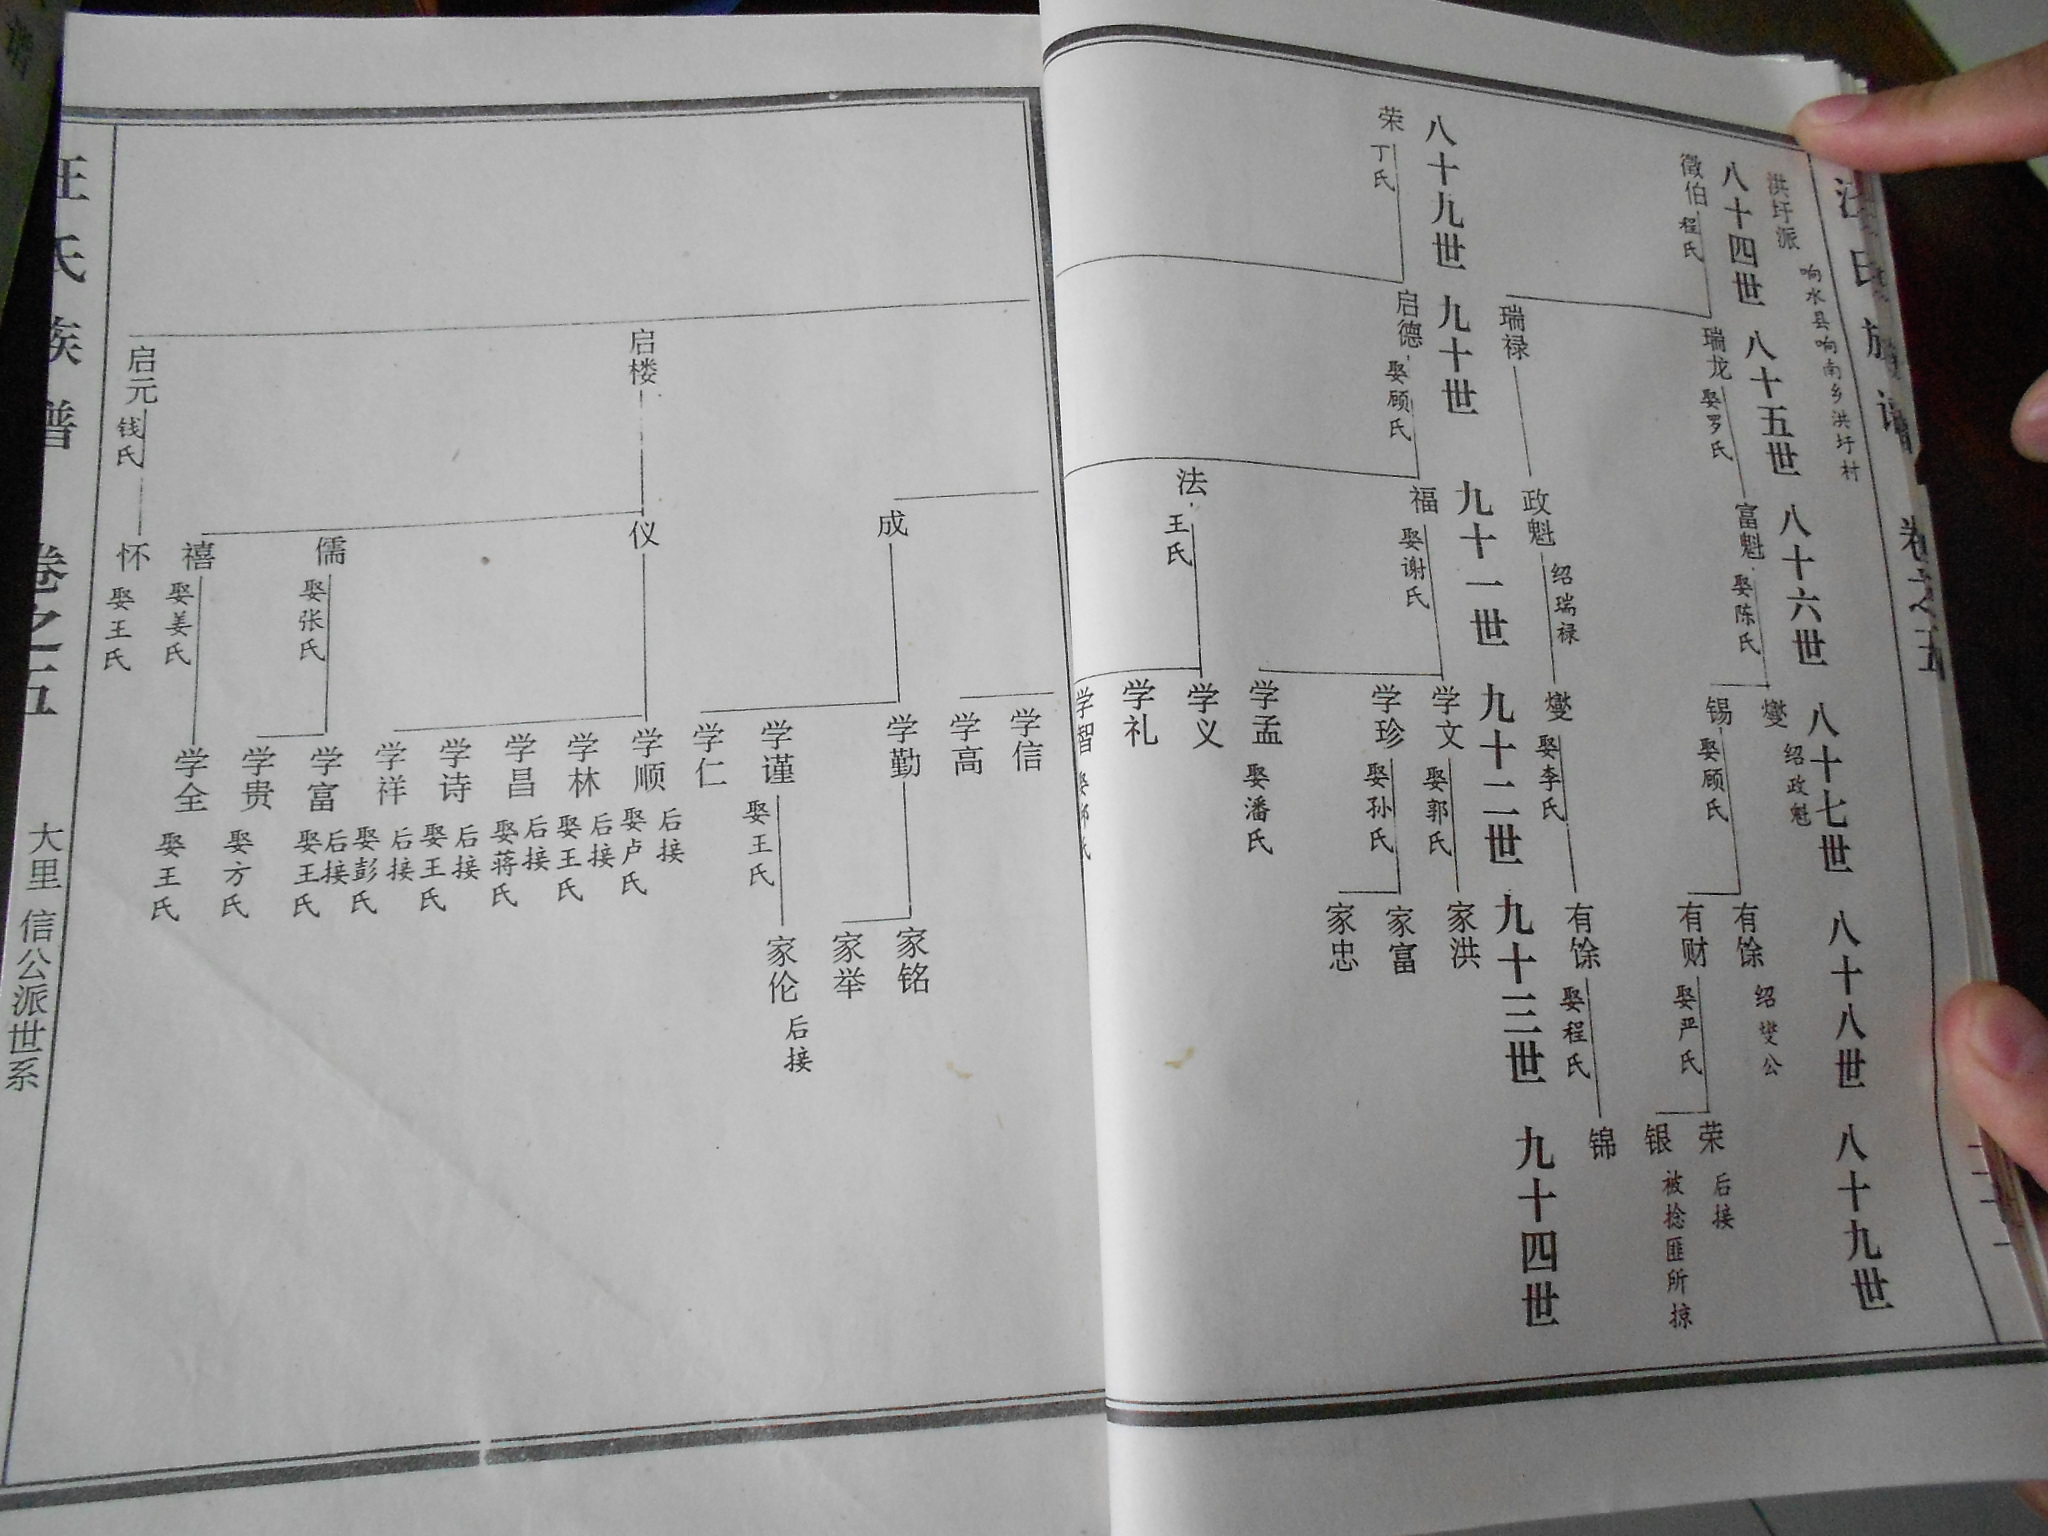 汪氏族谱
卷之五
洪圩派
响水县响南乡洪圩村
八十四世
八十五世
八十六世
八十七世
八十八世
八十九世
徵伯 程氏
瑞龙 娶罗氏
富魁 娶陈氏
燮 绍政魁
有馀 绍燮公
荣 后接
锡 娶顾氏
有财 娶严氏
银 被捻匪所掠
瑞禄
政魁 绍瑞禄
燮 娶李氏
有馀 娶程氏
锦
八十九世
九十世
九十一世
九十二世
九十三世
九十四世
荣 丁氏
启德 娶顾氏
福 娶谢氏
学文 娶郭氏
家洪
学珍 娶孙氏
家富
家忠
学孟 娶潘氏
法 王氏
学义
学礼
学智
学信
学高
成
学勤
家铭
家举
学谨 娶王氏
家伦 后接
学仁
启楼
仪
学顺 娶卢氏 后接
学林 娶王氏 后接
学昌 娶蒋氏 后接
学诗 娶王氏 后接
学祥 娶彭氏 后接
儒 娶张氏
学富 娶王氏 后接
学贵 娶方氏
禧 娶姜氏
学全 娶王氏
启元 钱氏
怀 娶王氏
汪氏族谱
卷之五
大里 信公派世系